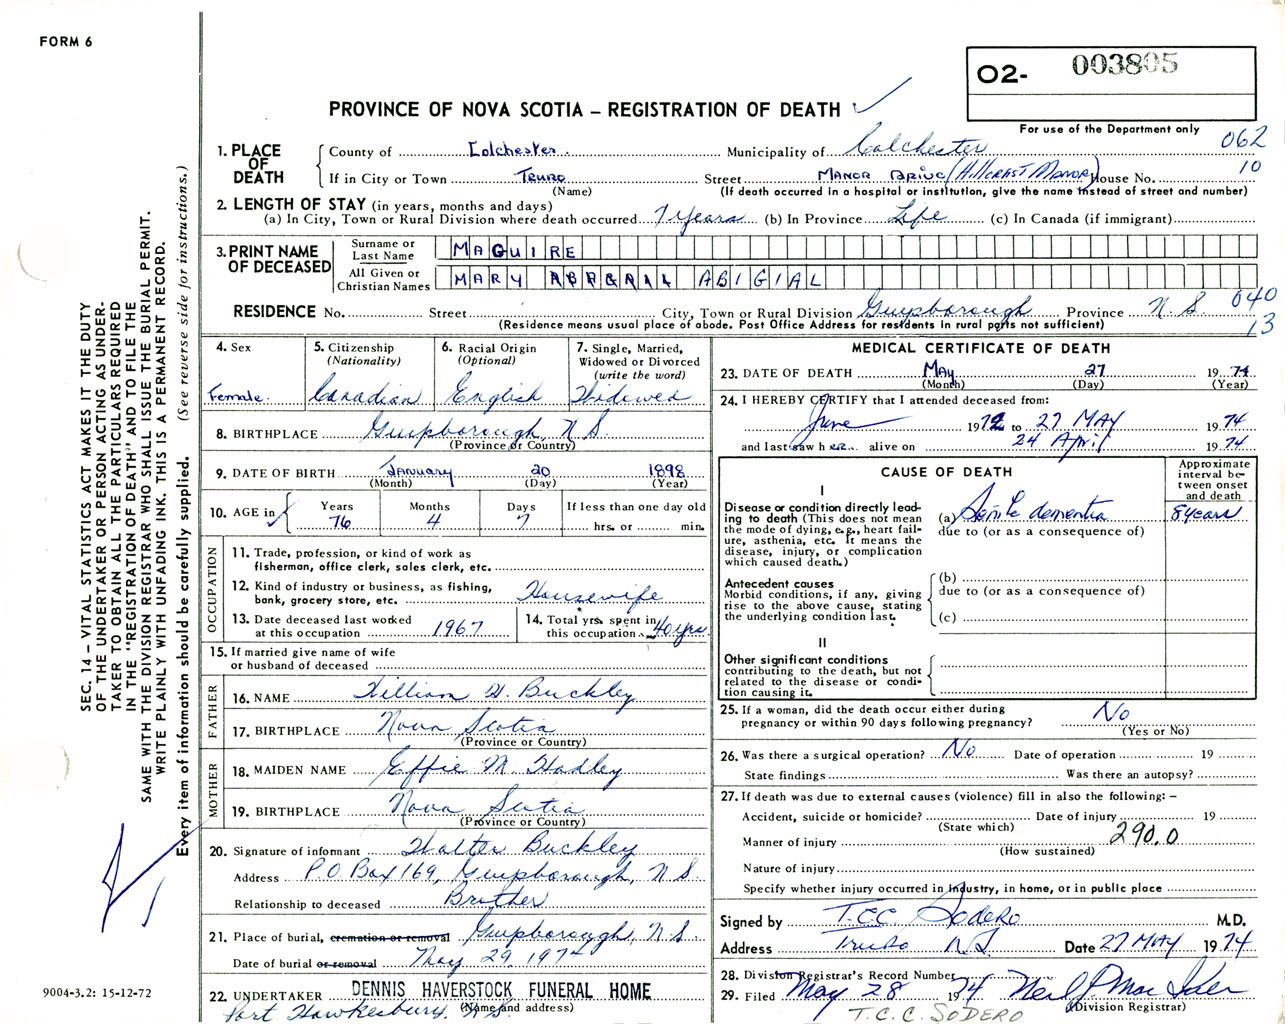 FORM 6
O2- 003805
PROVINCE OF NOVA SCOTIA – REGISTRATION OF DEATH ✓
For use of the Department only
062
10
1. PLACE OF DEATH
County of Colchester. Municipality of Colchester
If in City or Town Truro Street Manor Drive (Hillcrest Manor) House No.
(Name) (If death occurred in a hospital or institution, give the name instead of street and number)
2. LENGTH OF STAY (in years, months and days)
(a) In City, Town or Rural Division where death occurred 7 years (b) In Province Life (c) In Canada (if immigrant)
3. PRINT NAME OF DECEASED
Surname or Last Name MAGUIRE
All Given or Christian Names MARY ABIGIAL
RESIDENCE No. Street City, Town or Rural Division Guysborough Province N.S. 040
(Residence means usual place of abode. Post Office Address for residents in rural parts not sufficient) 13
4. Sex
Female.
5. Citizenship
(Nationality)
Canadian
6. Racial Origin
(Optional)
English
7. Single, Married,
Widowed or Divorced
(write the word)
Widowed
8. BIRTHPLACE Guysborough, N.S.
(Province or Country)
9. DATE OF BIRTH January 20 1898
(Month) (Day) (Year)
10. AGE in ✓ Years Months Days If less than one day old
76 4 7 hrs. or min.
OCCUPATION
11. Trade, profession, or kind of work as
fisherman, office clerk, sales clerk, etc.
12. Kind of industry or business, as fishing,
bank, grocery store, etc. Housewife
13. Date deceased last worked
at this occupation 1967
14. Total yrs. spent in
this occupation 40 yrs
15. If married give name of wife
or husband of deceased
FATHER
16. NAME William H. Buckley
17. BIRTHPLACE Nova Scotia
(Province or Country)
MOTHER
18. MAIDEN NAME Effie M. Hadley
19. BIRTHPLACE Nova Scotia
(Province or Country)
20. Signature of informant Walter Buckley
Address P.O. Box 169, Guysborough, N S
Relationship to deceased Brother
21. Place of burial, cremation or removal Guysborough, N.S.
Date of burial or removal May 29, 1974
22. UNDERTAKER DENNIS HAVERSTOCK FUNERAL HOME
(Name and address)
Port Hawkesbury, N.S.
MEDICAL CERTIFICATE OF DEATH
23. DATE OF DEATH May 27 1974
(Month) (Day) (Year)
24. I HEREBY CERTIFY that I attended deceased from:
June 1972 to 27 MAY 1974
and last saw her alive on 24 April 1974
CAUSE OF DEATH
Approximate interval between onset and death
I
Disease or condition directly leading to death (This does not mean
the mode of dying, e.g., heart failure, asthenia, etc. It means the
disease, injury, or complication
which caused death.)
(a) Senile dementia 8 years
due to (or as a consequence of)
Antecedent causes
Morbid conditions, if any, giving
rise to the above cause, stating
the underlying condition last.
(b)
due to (or as a consequence of)
(c)
II
Other significant conditions
contributing to the death, but not
related to the disease or condition causing it.
25. If a woman, did the death occur either during
pregnancy or within 90 days following pregnancy? No
(Yes or No)
26. Was there a surgical operation? No Date of operation 19
State findings Was there an autopsy?
27. If death was due to external causes (violence) fill in also the following: –
Accident, suicide or homicide? Date of injury 19
(State which)
Manner of injury 290.0
(How sustained)
Nature of injury
Specify whether injury occurred in industry, in home, or in public place
Signed by T.C.C. Sodero M.D.
Address Truro N.S. Date 27 MAY 1974
28. Division Registrar's Record Number
29. Filed May 28 1974
(Division Registrar)
T.C.C. SODERO
SEC. 14 – VITAL STATISTICS ACT MAKES IT THE DUTY
OF THE UNDERTAKER OR PERSON ACTING AS UNDER-
TAKER TO OBTAIN ALL THE PARTICULARS REQUIRED
IN THE "REGISTRATION OF DEATH" AND TO FILE THE
SAME WITH THE DIVISION REGISTRAR WHO SHALL ISSUE THE BURIAL PERMIT.
WRITE PLAINLY WITH UNFADING INK. THIS IS A PERMANENT RECORD.
Every item of information should be carefully supplied. (See reverse side for instructions.)
9004-3.2: 15-12-72